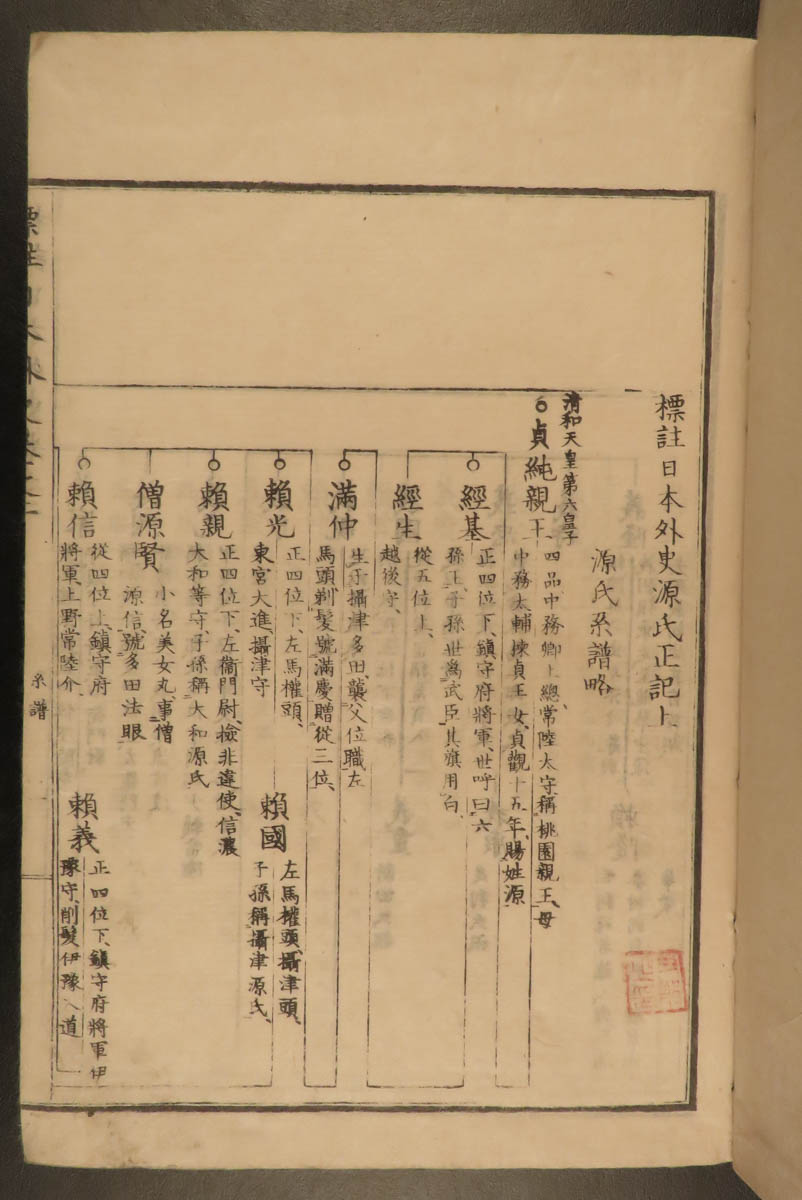 標註日本外史源氏正記上
源氏系譜略
清和天皇第六皇子
貞純親王
四品中務卿上總、常陸太守稱桃園親王、母
中務太輔揀貞王女、貞觀十五年、賜姓源
經基
正四位下、鎮守府將軍、世呼曰六
孫王、子孫世爲武臣、其旗用白、
經生
從五位上、
越後守、
滿仲
生于攝津多田、襲父位職、左
馬頭、剃髮號滿慶、贈從三位、
賴光
正四位下、左馬權頭、
東宮大進、攝津守
賴國
左馬權頭、攝津頭、
子孫稱攝津源氏、
賴親
正四位下、左衞門尉、撿非違使、信濃
大和等守、子孫稱大和源氏
僧源賢
小名美女丸、事僧
源信、號多田法眼
賴信
從四位上、鎮守府
將軍、上野常陸介、
賴義
正四位下、鎮守府將軍伊
豫守、削髮伊豫入道
系譜